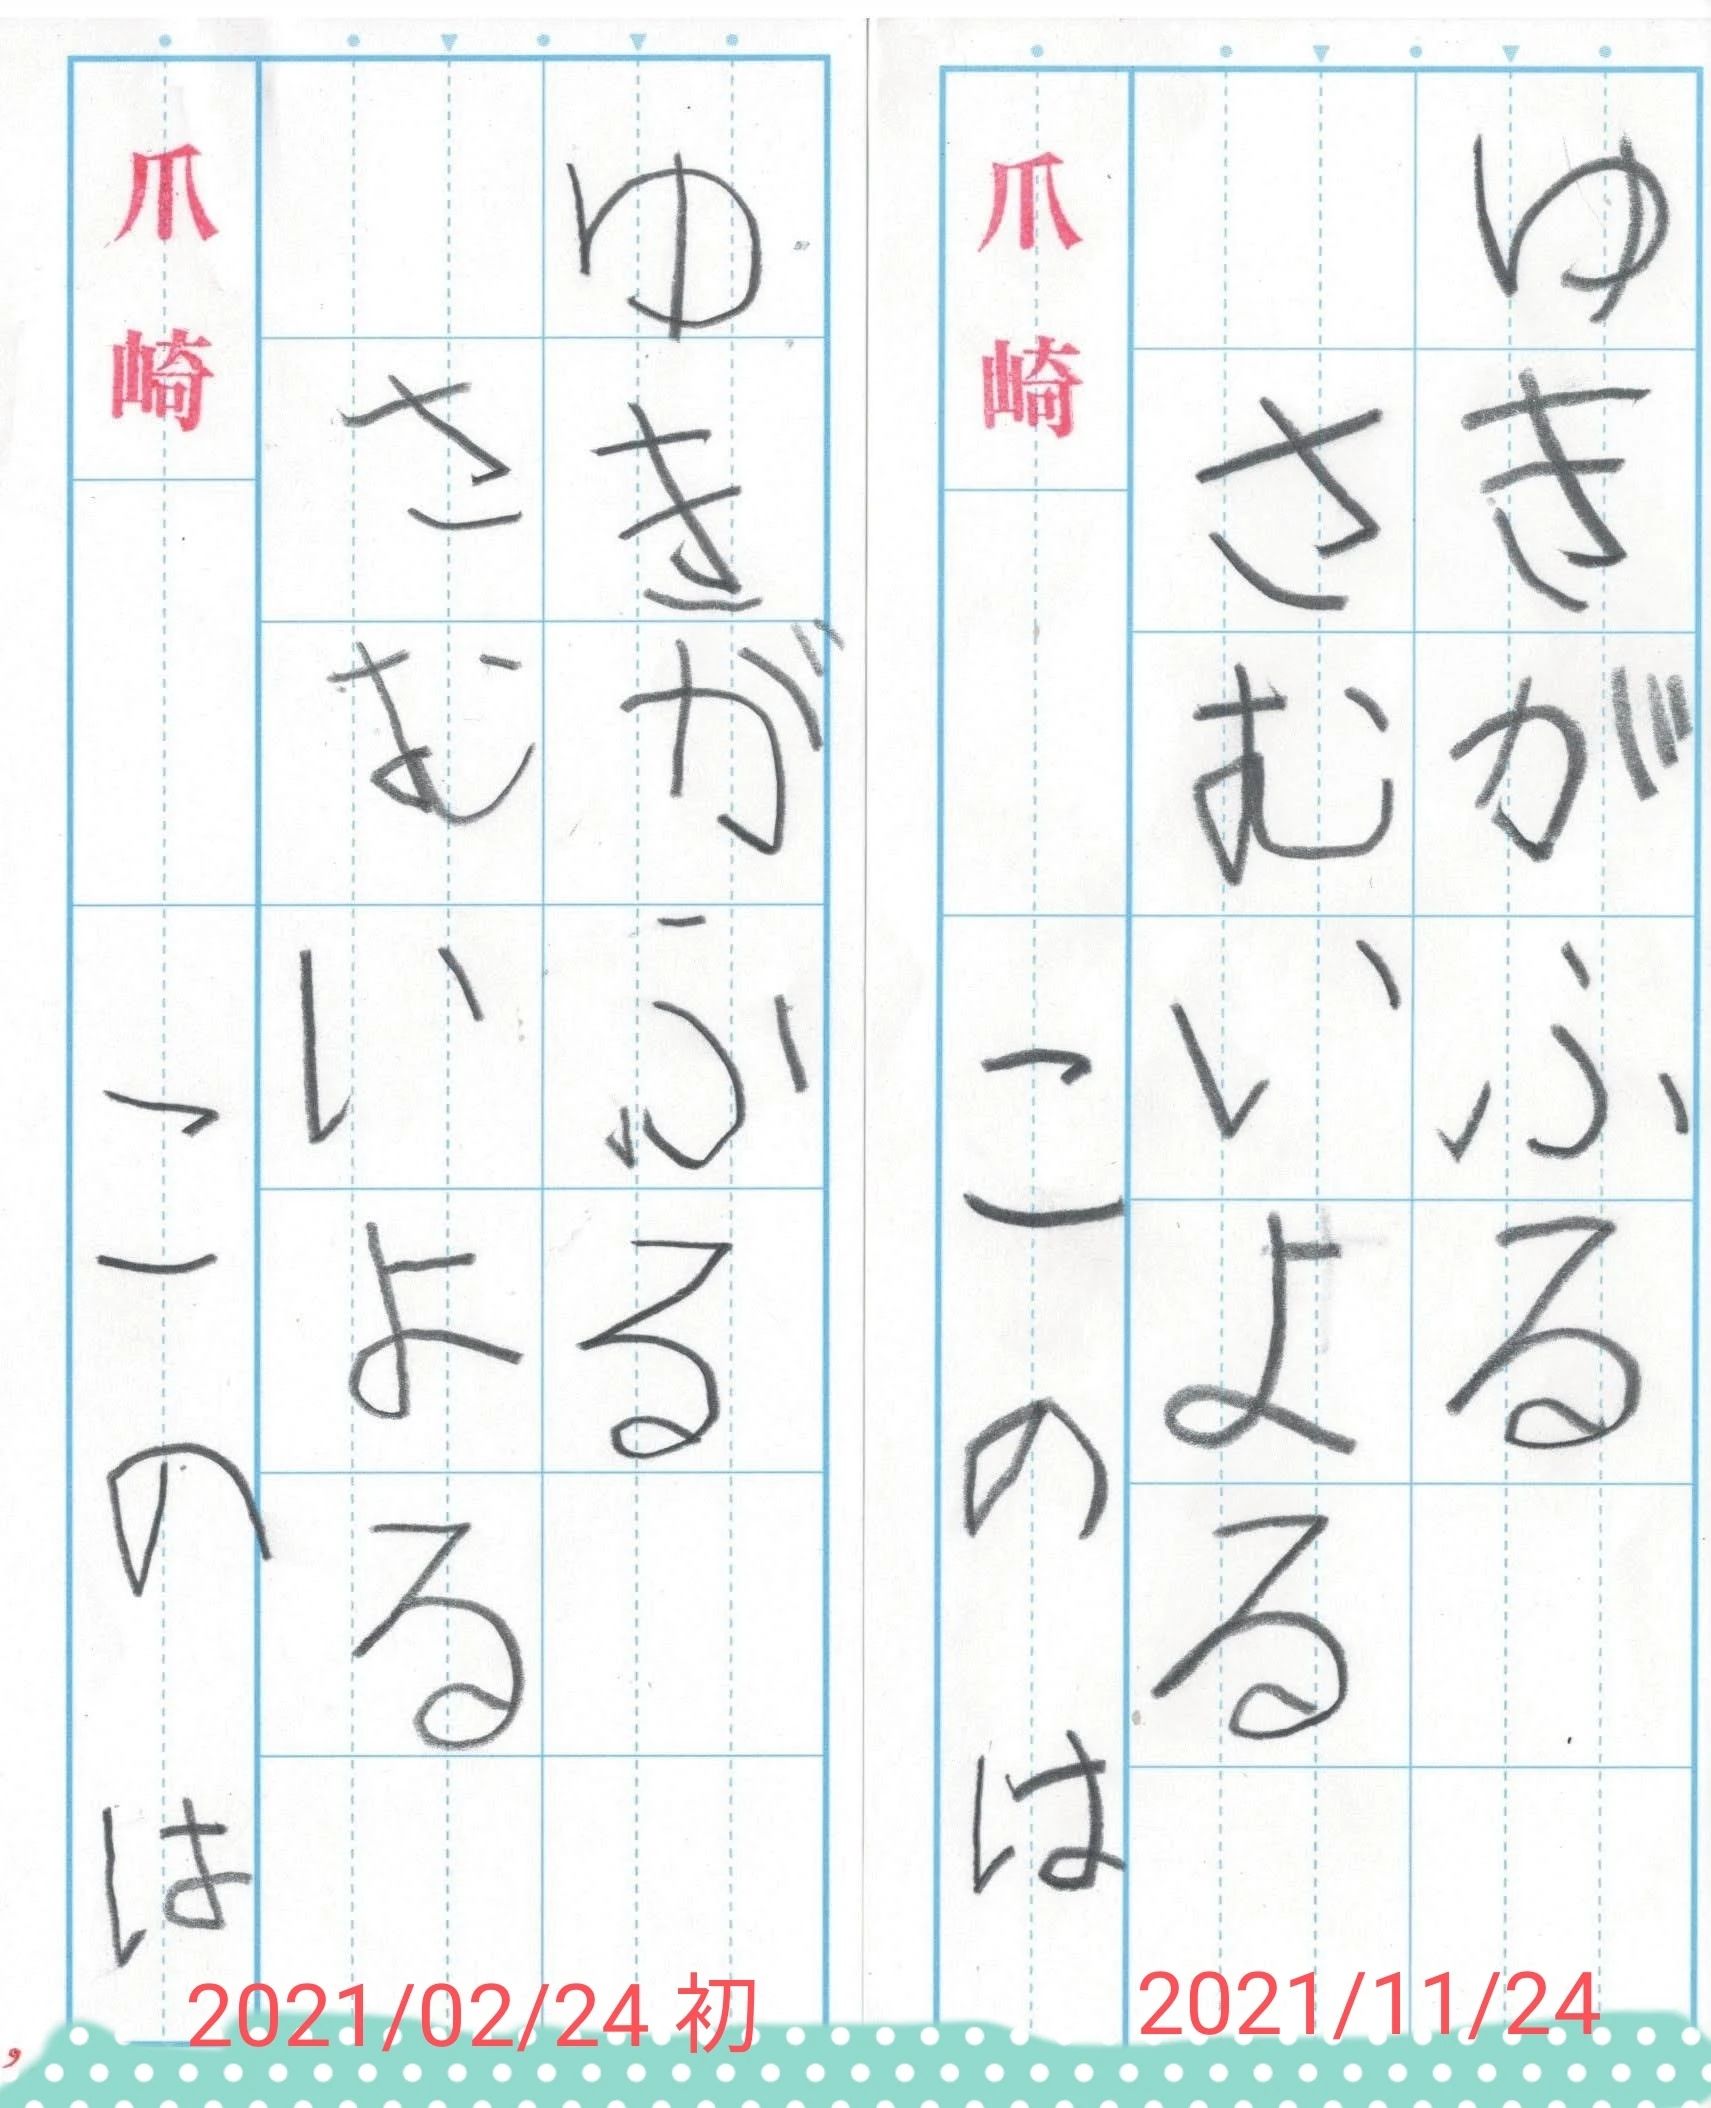 ゆきがふる
さむいよる
爪崎 このは
2021/02/24 初
ゆきがふる
さむいよる
爪崎 このは
2021/11/24